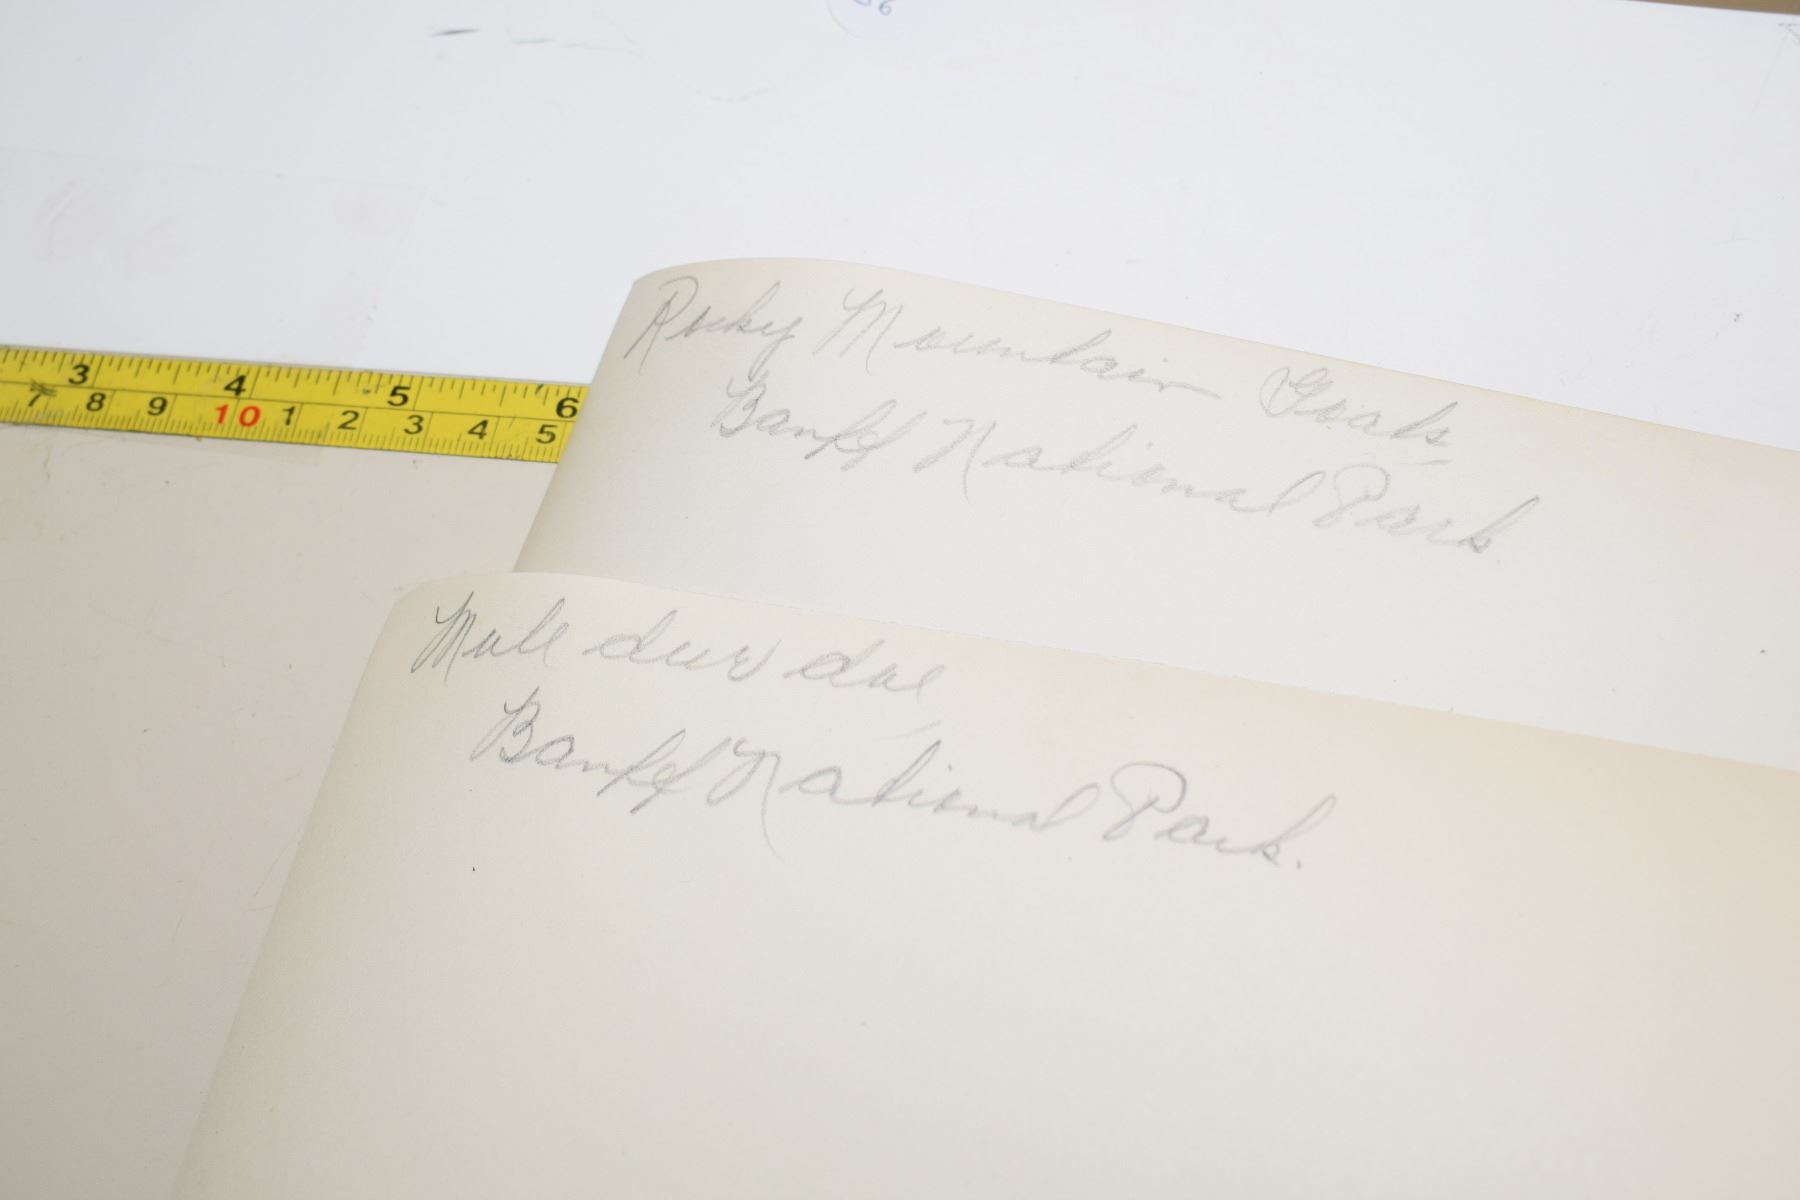 36
3 4 5 6
7 8 9 10 1 2 3 4 5
Rocky Mountain Goats
Banff National Park.
Mule deer doe
Banff National Park.